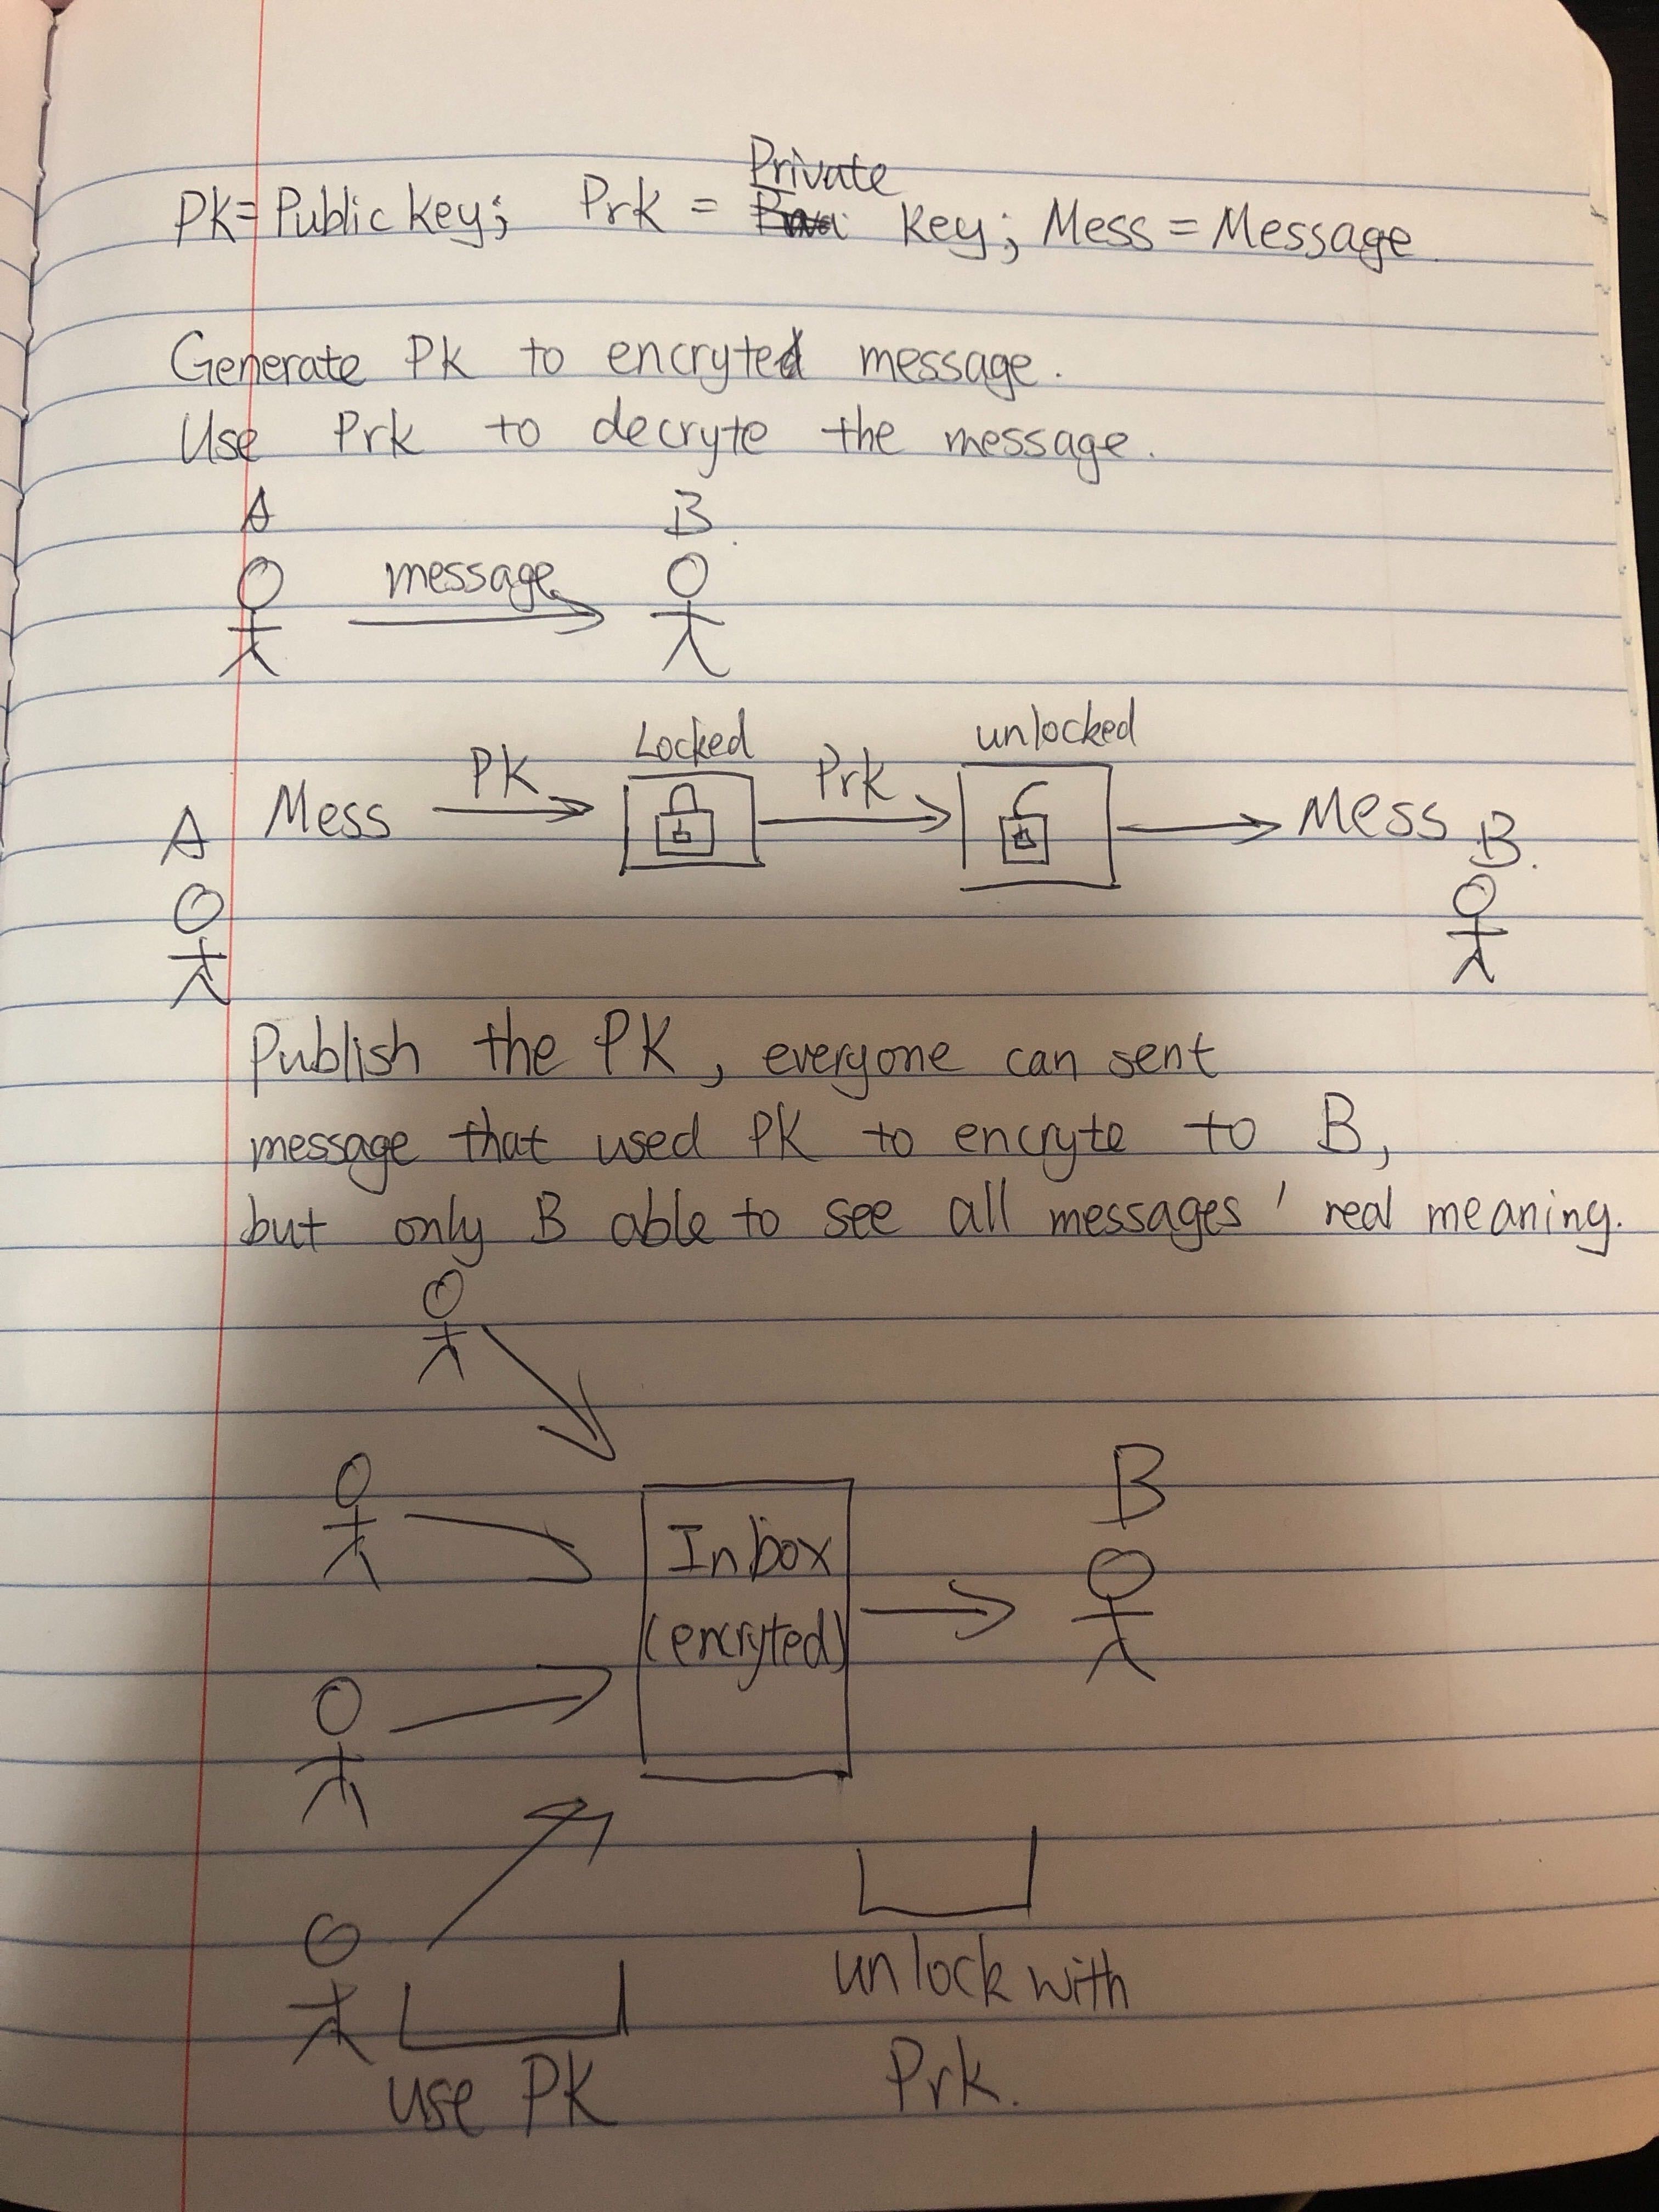 Private
PK=Public key; Prk = key; Mess = Message
Generate PK to encryted message.
Use Prk to decryte the message.
A B
message
Locked unlocked
PK Prk
A Mess Mess B.
Publish the PK, everyone can sent
message that used PK to encryte to B,
but only B able to see all messages' real meaning.
B
Inbox
(encryted)
unlock with
Prk.
use PK